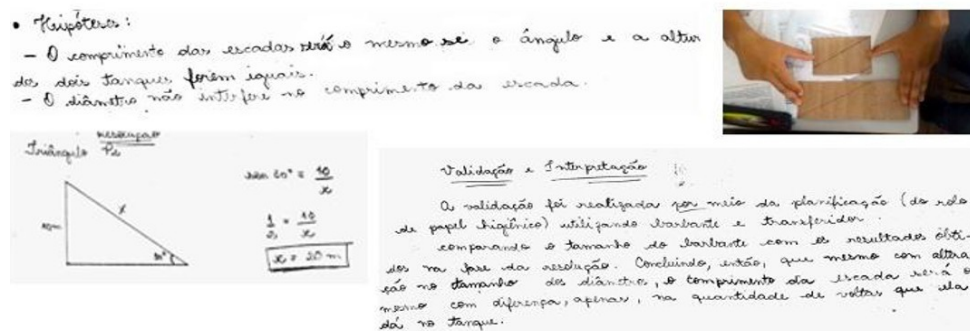 • Hipóteses:
- O comprimento das escadas será o mesmo se o ângulo e a altur
dos dois tanques forem iguais.
- O diâmetro não interfere no comprimento da escada.
Resolução
Triângulo
x
30°
1/2 = 10/x
x = 20 m
Validação e Interpretação
A validação foi realizada por meio da planificação (do rolo
de papel higiênico) utilizando barbante e transferidor.
comparando o tamanho do barbante com os resultados obti-
dos na fase da resolução. Concluindo, então, que mesmo com altera
ção no tamanho dos diâmetros, o comprimento da escada será o
mesmo com diferença, apenas, na quantidade de voltas que ela
dá no tanque.